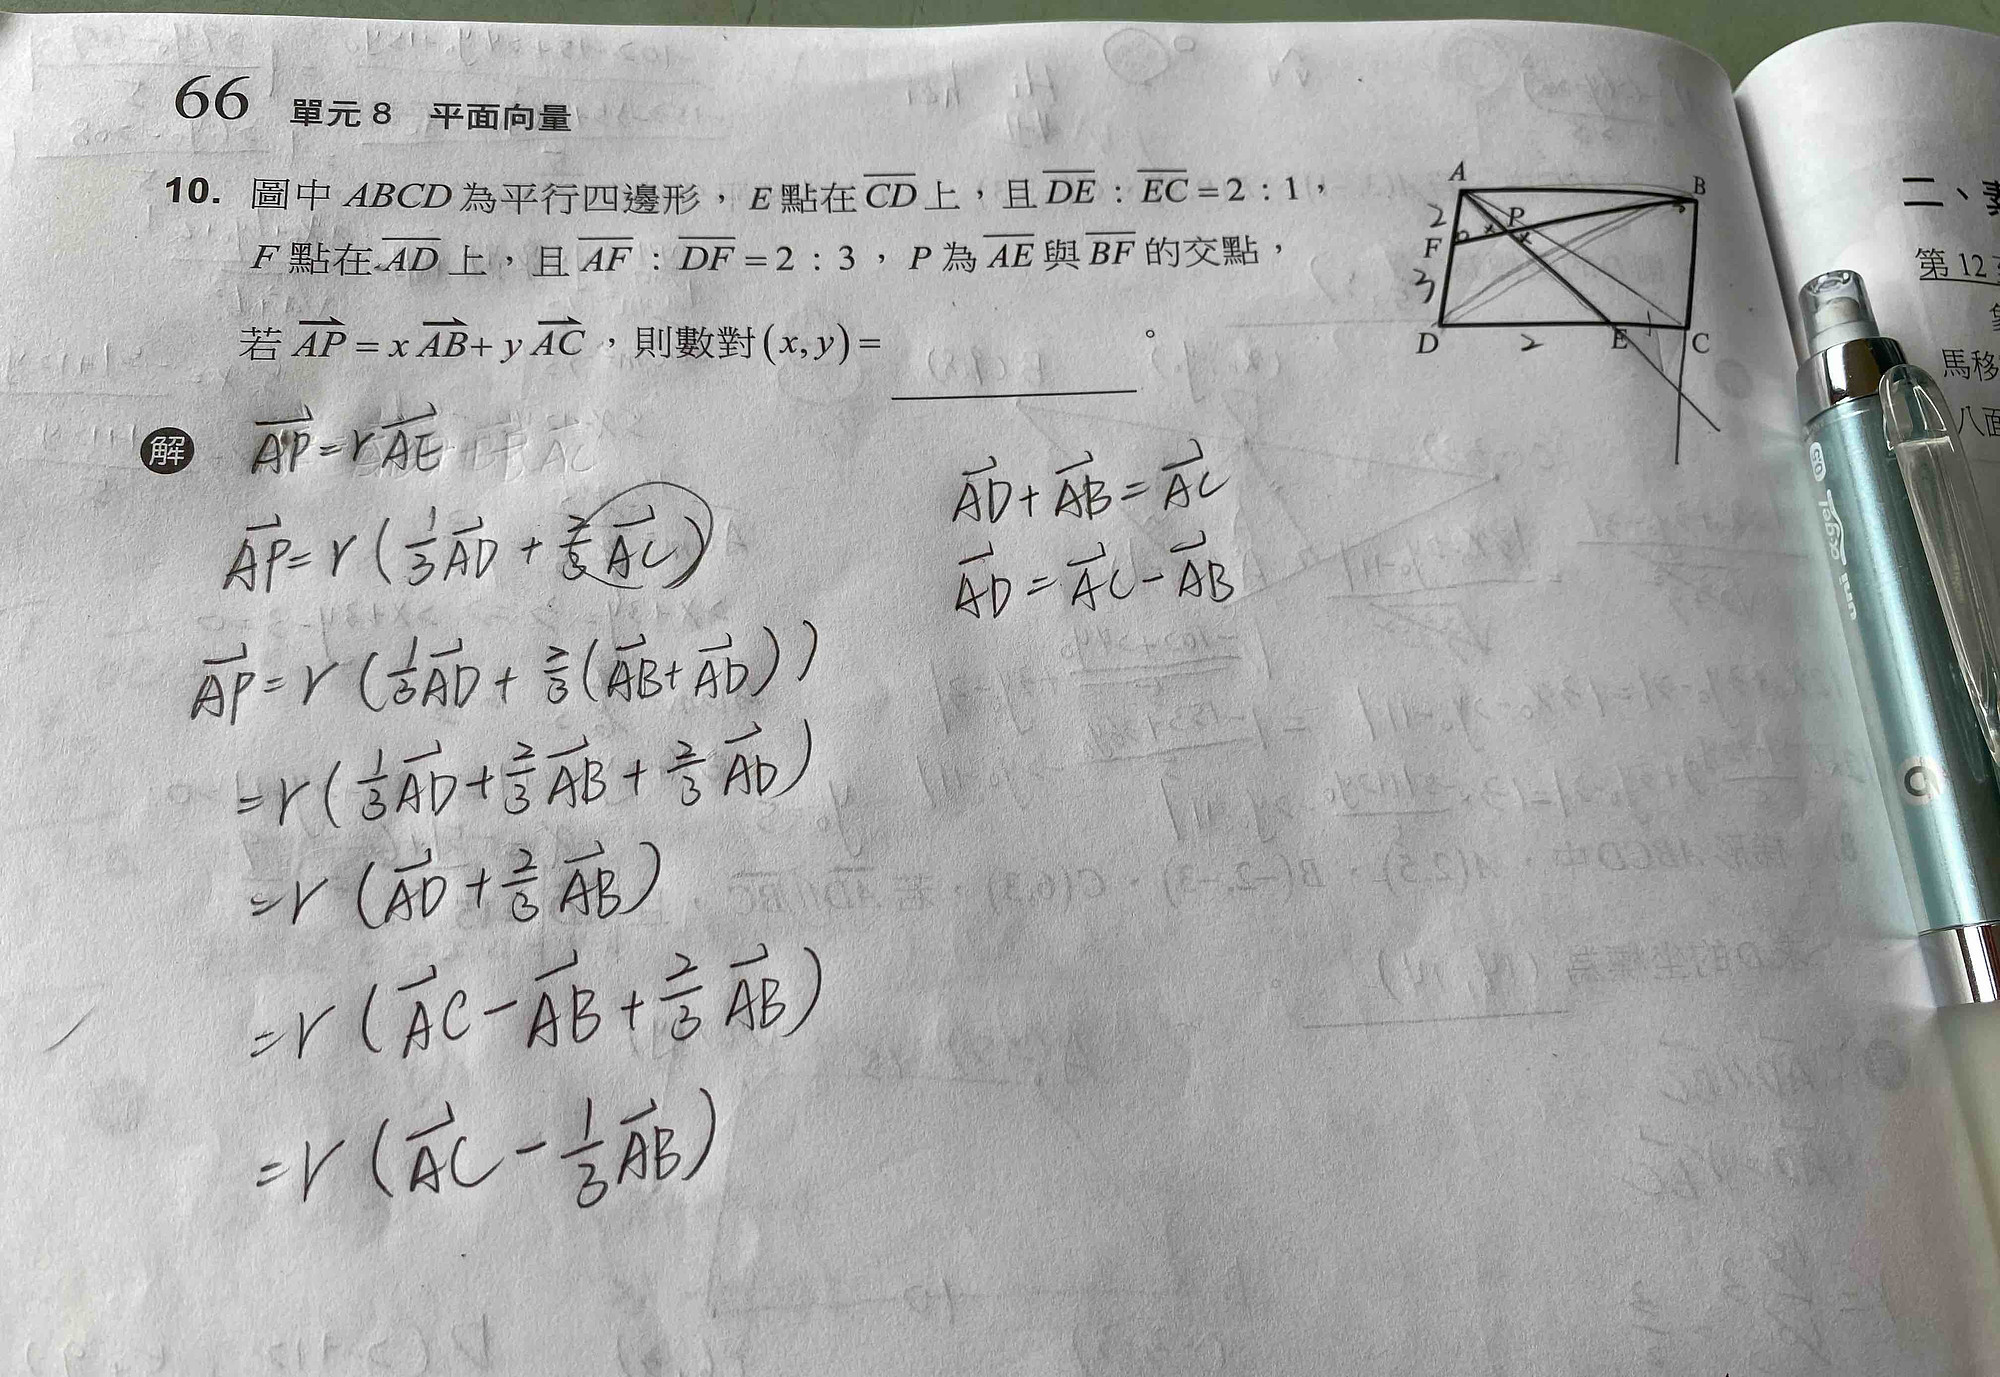 66 單元 8 平面向量
10. 圖中 ABCD 為平行四邊形，E 點在 \overline{CD} 上，且 \overline{DE}：\overline{EC}=2：1，
F 點在 \overline{AD} 上，且 \overline{AF}：\overline{DF}=2：3，P 為 \overline{AE} 與 \overline{BF} 的交點，
若 \overrightarrow{AP}=x\overrightarrow{AB}+y\overrightarrow{AC}，則數對(x,y)= 。
A
B
2
P
F
3
D
2
E
1
C
解 \overrightarrow{AP}=r\overrightarrow{AE}
\overrightarrow{AP}=r(\frac{1}{3}\overrightarrow{AD}+\frac{2}{3}\overrightarrow{AC})
\overrightarrow{AP}=r(\frac{1}{3}\overrightarrow{AD}+\frac{2}{3}(\overrightarrow{AB}+\overrightarrow{AD}))
=r(\frac{1}{3}\overrightarrow{AD}+\frac{2}{3}\overrightarrow{AB}+\frac{2}{3}\overrightarrow{AD})
=r(\overrightarrow{AD}+\frac{2}{3}\overrightarrow{AB})
=r(\overrightarrow{AC}-\overrightarrow{AB}+\frac{2}{3}\overrightarrow{AB})
=r(\overrightarrow{AC}-\frac{1}{3}\overrightarrow{AB})
\overrightarrow{AD}+\overrightarrow{AB}=\overrightarrow{AC}
\overrightarrow{AD}=\overrightarrow{AC}-\overrightarrow{AB}
二、
第 12
馬移
八面